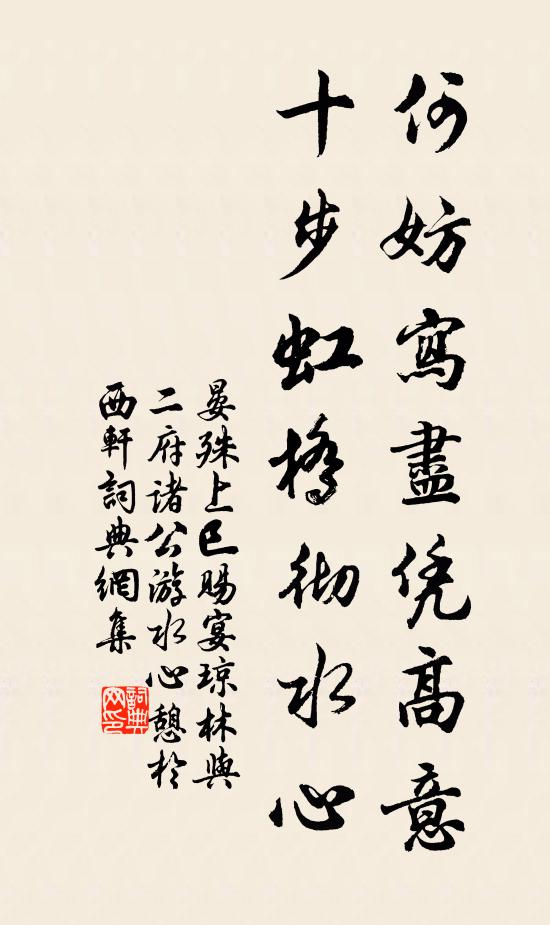 何妨寫盡凭高意
十步虹橋彻水心
晏殊上巳賜宴琼林與
二府诸公游水心憩於
西軒詞典網集
詞典
网印